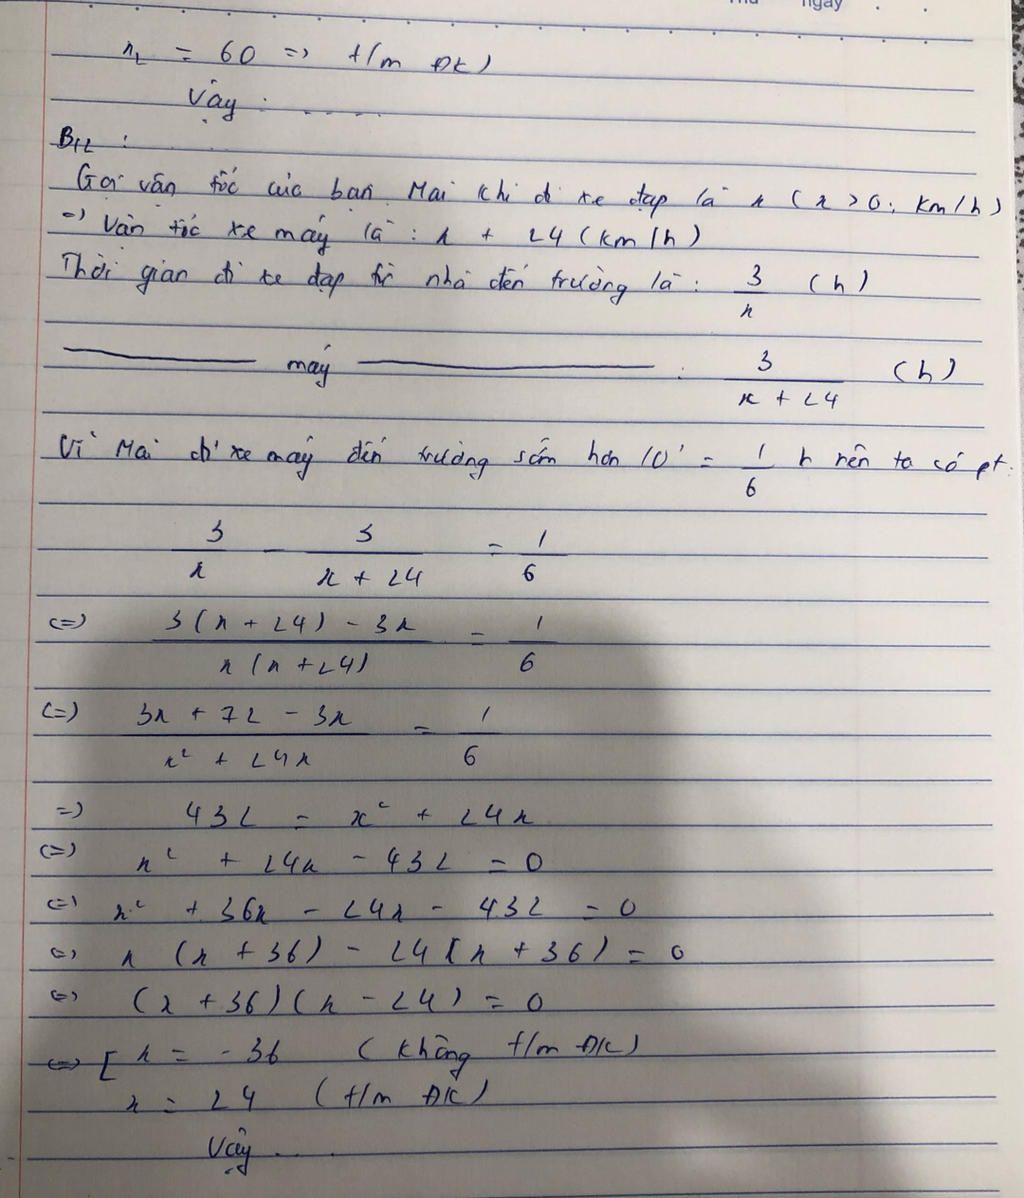 ngày
x₂ = 60 => t/m ĐK)
Vậy : .....
B12 :
Gọi vận tốc của bạn Mai khi đi xe đạp là x (x > 0; km/h)
=> Vận tốc xe máy là : x + 24 (km/h)
Thời gian đi xe đạp từ nhà đến trường là : 3/x (h)
——— máy ——— : 3/(x + 24) (h)
Vì Mai đi xe máy đến trường sớm hơn 10' = 1/6 h nên ta có pt:
3/x - 3/(x + 24) = 1/6
(=) (3(x + 24) - 3x)/(x(x + 24)) = 1/6
(=) (3x + 72 - 3x)/(x² + 24x) = 1/6
=) 432 = x² + 24x
(=) x² + 24x - 432 = 0
(=) x² + 36x - 24x - 432 = 0
(=) x (x + 36) - 24 (x + 36) = 0
(=) (x + 36)(x - 24) = 0
<=> [ x = -36 (không t/m ĐK)
x = 24 (t/m ĐK)
Vậy ....